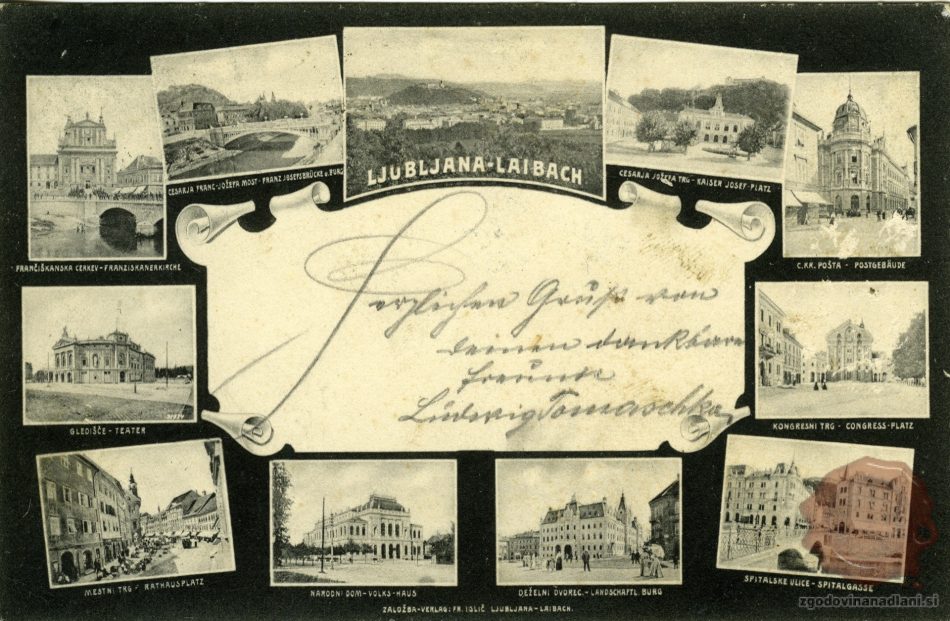 LJUBLJANA-LAIBACH
CESARJA FRANC-JOŽEFA MOST - FRANZ JOSEFSBRÜCKE u. BURG
CESARJA JOŽEFA TRG - KAISER JOSEF-PLATZ
FRANČIŠKANSKA CERKEV - FRANZISKANERKIRCHE
C. KR. POŠTA - POSTGEBÄUDE
Herzlichen Gruß von
deinen dankbare
Freund
Ludwig Tomaschka
GLEDIŠČE - TEATER
KONGRESNI TRG - CONGRESS-PLATZ
MESTNI TRG - RATHAUSPLATZ
NARODNI DOM - VOLKS-HAUS
DEŽELNI DVOREC. - LANDSCHAFTL. BURG
SPITALSKE ULICE - SPITALGASSE
ZALOŽBA-VERLAG: FR. IGLIČ LJUBLJANA-LAIBACH.
zgodovinanadlani.si